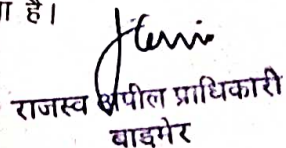 है।
राजस्व अपील प्राधिकारी
बाड़मेर